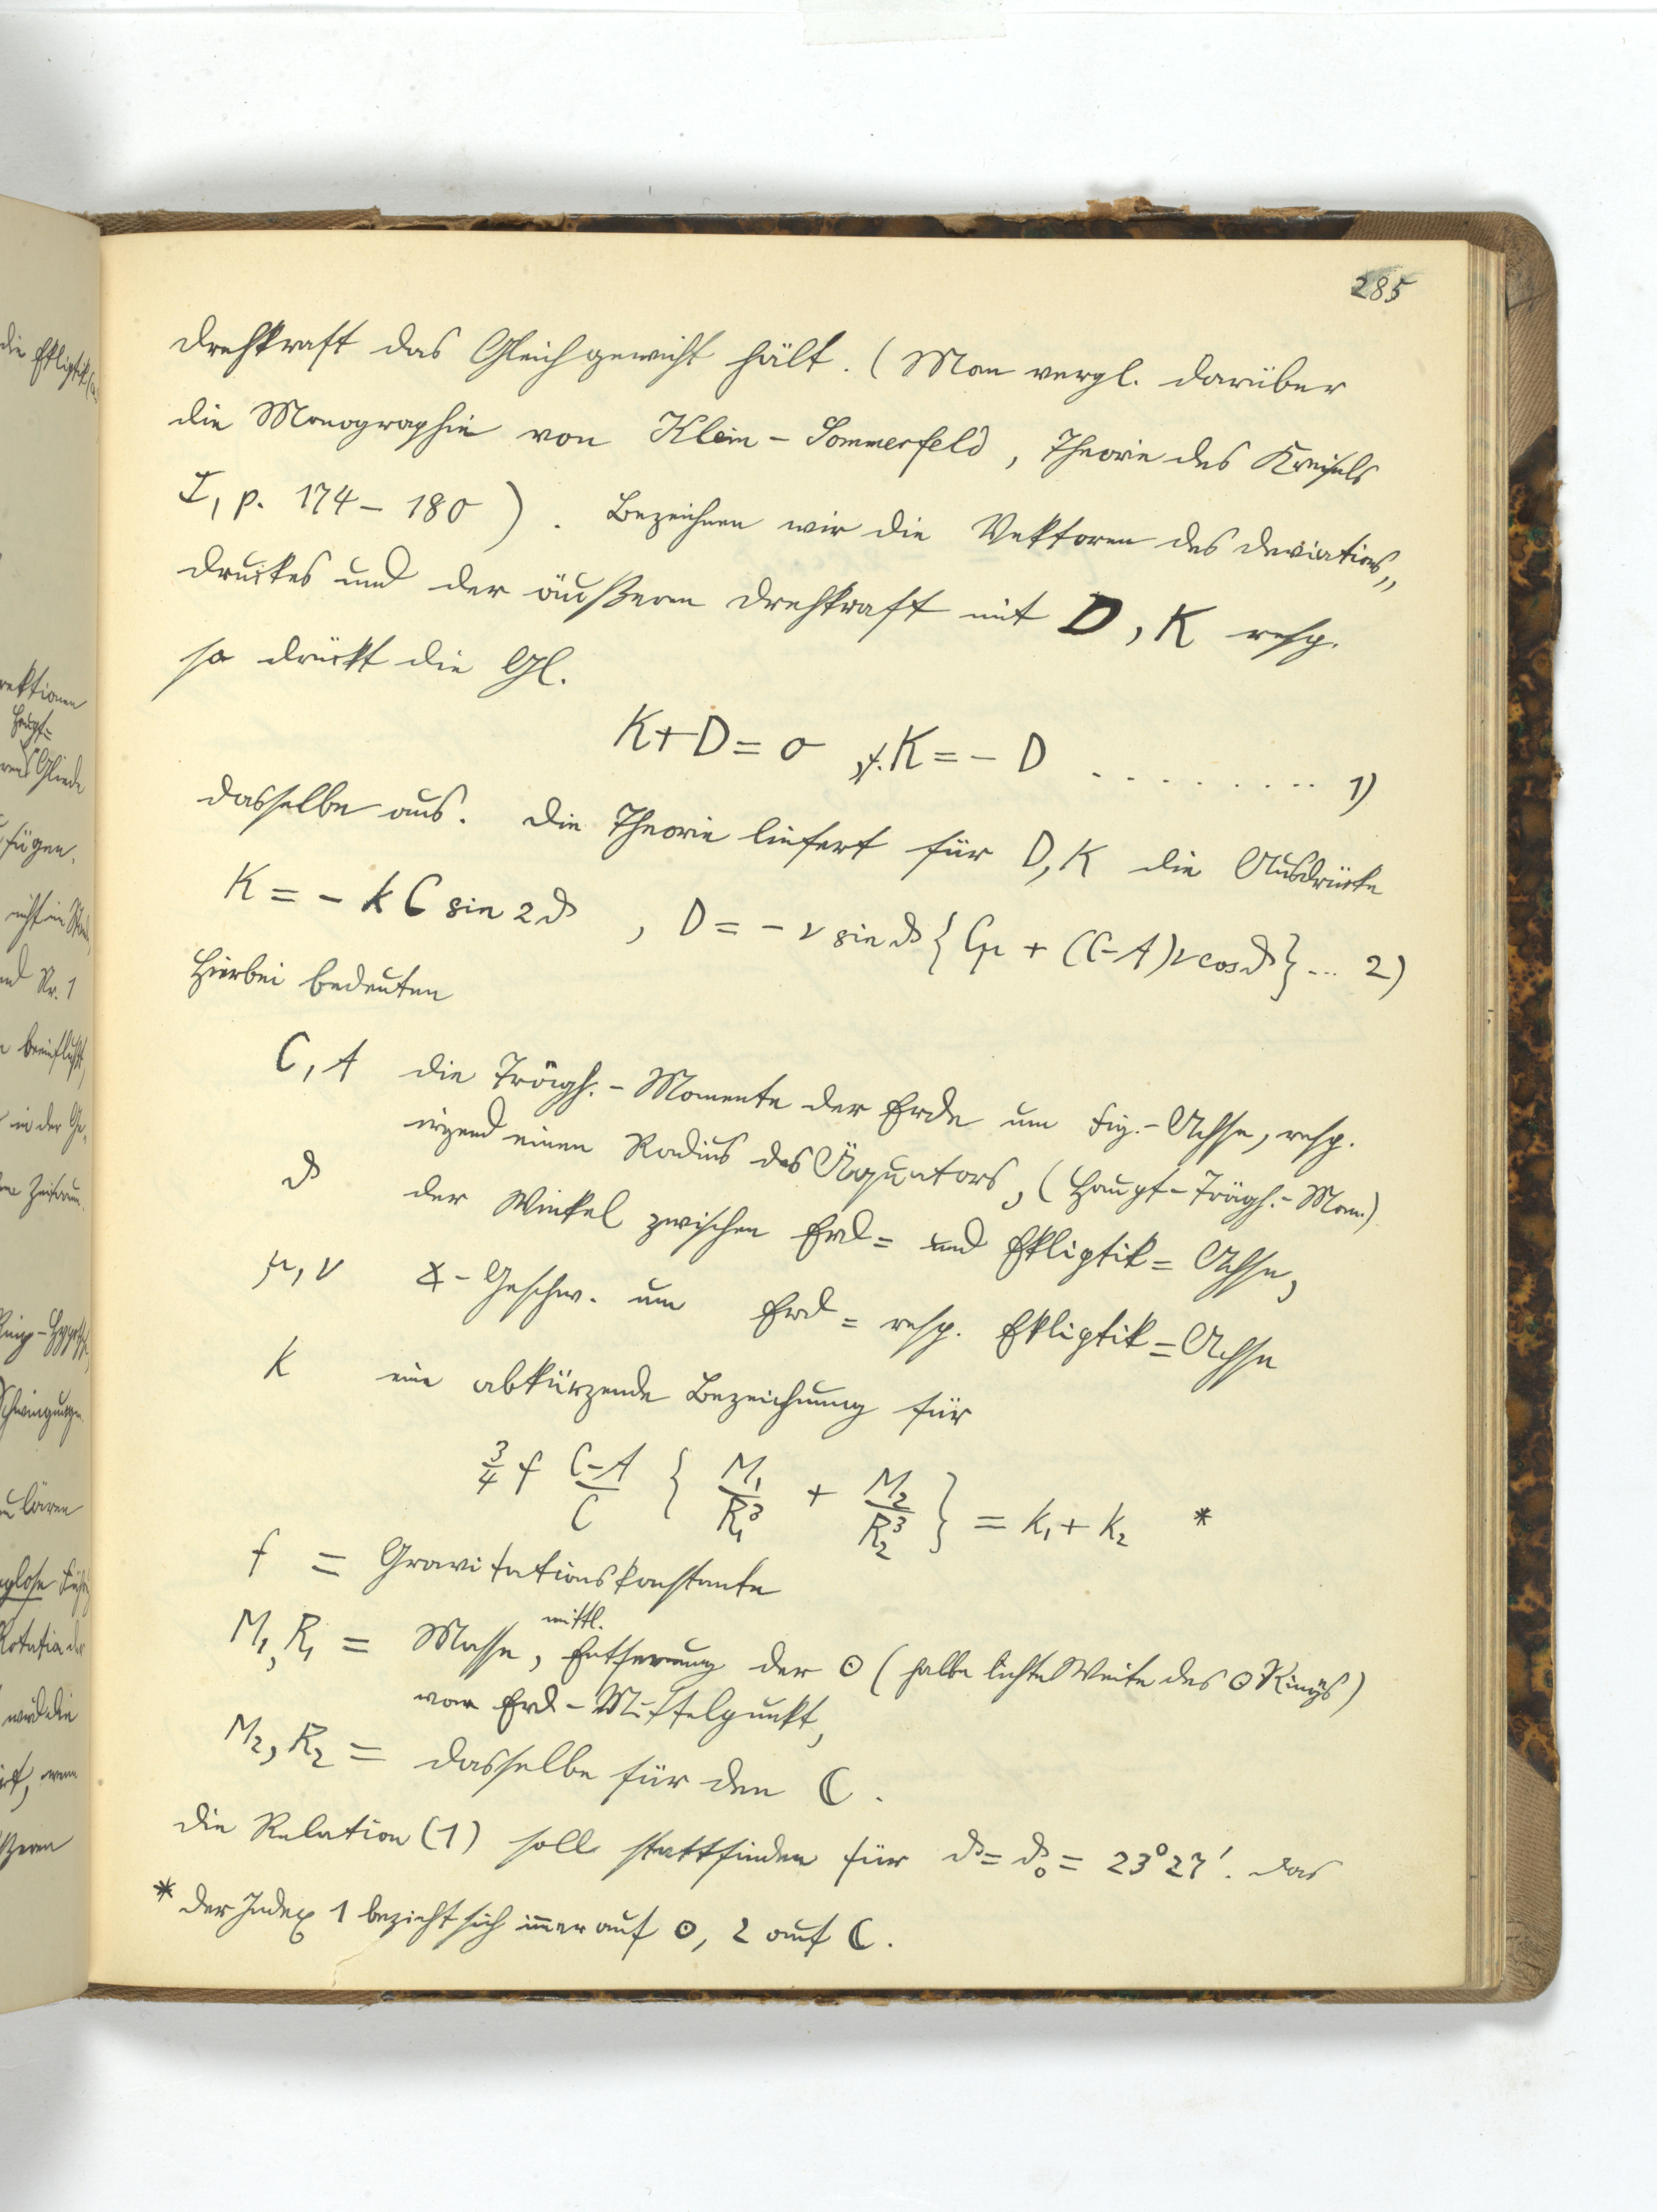 285
Drehkraft das Gleichgewicht hält. (Man vergl. darüber
die Monographie von Klein-Sommerfeld, Theorie des Kreisels
I, p. 174-180). Bezeichnen wir die Vektoren des Deviations„
druckes und der äußeren Drehkraft mit D, K resp.
so drückt die Gl.
K+D=0, K=-D ......... 1)
dasselbe aus. Die Theorie liefert für D, K die Ausdrücke
K = - k C sin 2ϑ , D = - ν sin ϑ {Cμ + (C-A)ν cos ϑ} ... 2)
Hierbei bedeuten
C, A die Trägh.-Momente der Erde um Fig.-Achse, resp.
irgend einen Radius des Äquators, (Haupt-Trägh.-Mom.)
ϑ der Winkel zwischen Erd= und Ekliptik=Achse,
μ, ν ∢-Geschw. um Erd= resp. Ekliptik=Achse
k eine abkürzende Bezeichnung für
3/4 f (C-A)/C { M₁/R₁³ + M₂/R₂³ } = k₁ + k₂ *
f = Gravitationskonstante
mittl.
M₁, R₁ = Masse, Entfernung der ⊙ (halbe lichte Weite des ⊙ Rings)
vom Erd-Mittelpunkt,
M₂, R₂ = dasselbe für den ☾.
Die Relation (1) soll stattfinden für ϑ = ϑ₀ = 23°27'. Das
* Der Index 1 bezieht sich immer auf ⊙, 2 auf ☾.